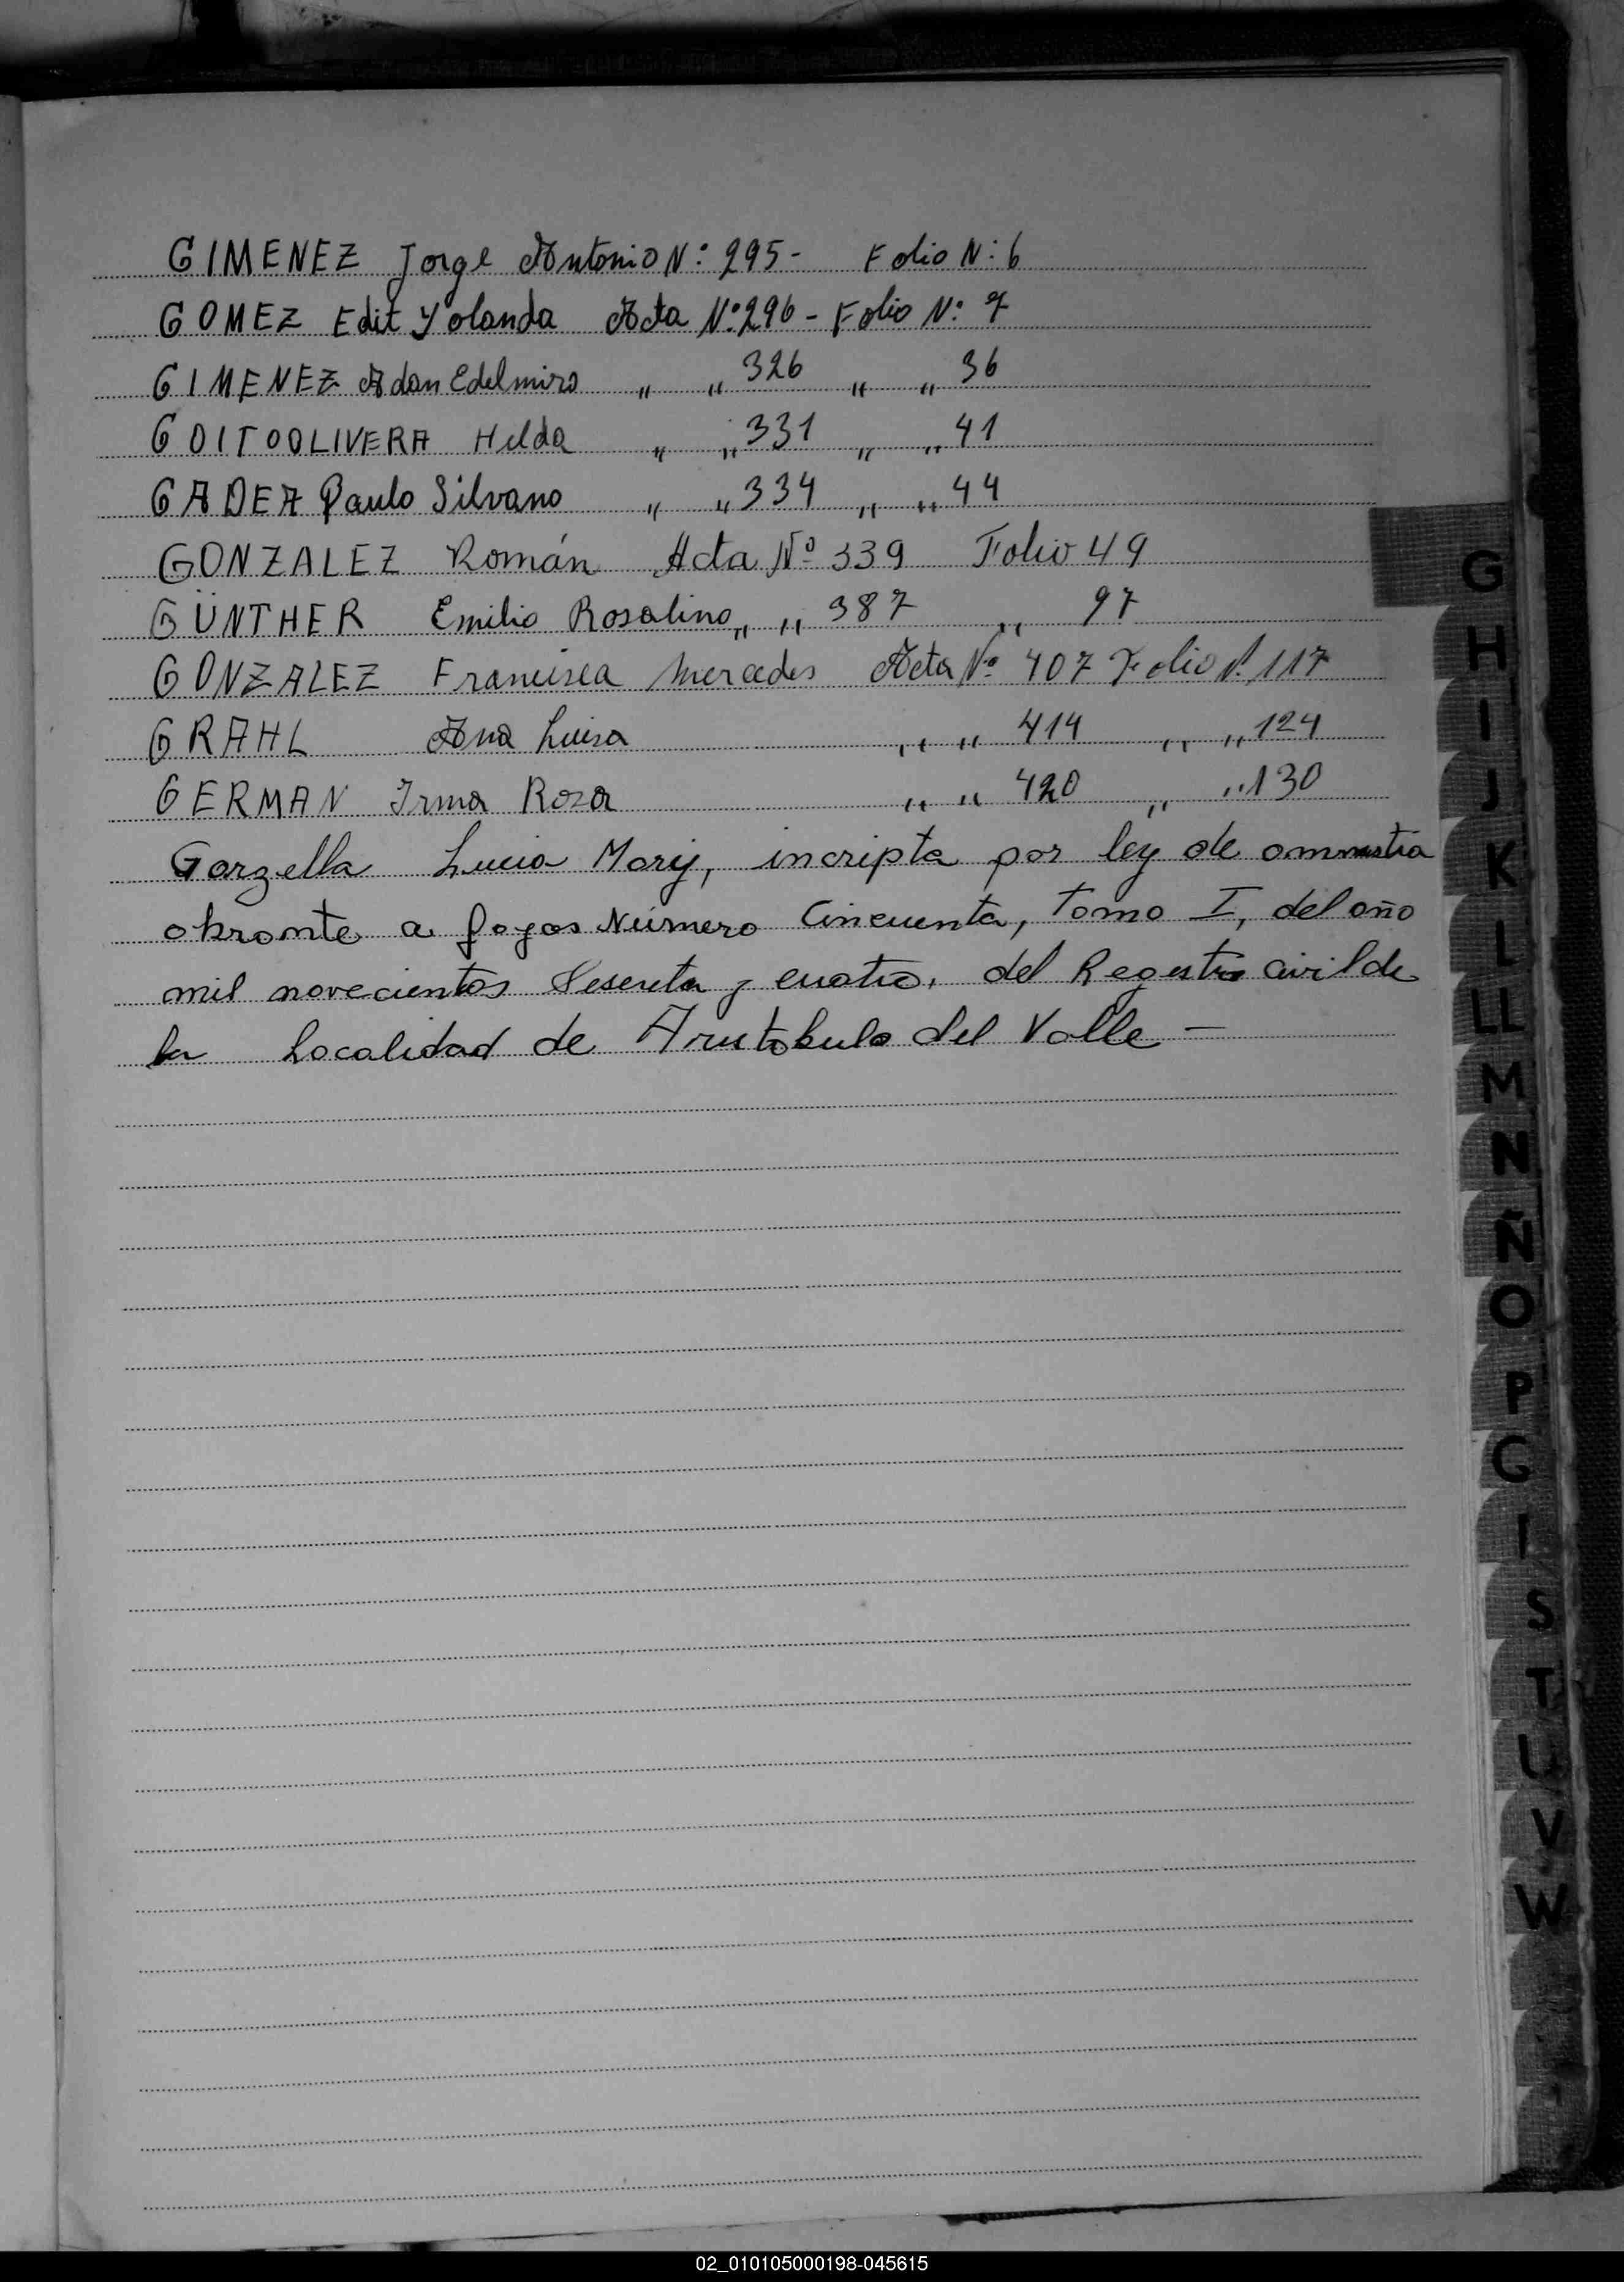 GIMENEZ Jorge Antonio Nº: 295- Folio N: 6
GOMEZ Edit Yolanda Acta Nº 296 - Folio Nº: 7
GIMENEZ Adan Edelmiro " " 326 " " 36
GOITOOLIVERA Hilda " " 331 " " 41
GADEA Paulo Silvano " " 334 " " 44
GONZALEZ Román Acta Nº 339 Folio 49
GÜNTHER Emilio Rosalino " " 387 " 97
GONZALEZ Francisca Mercedes Acta Nº 407 Folio Nº 117
GRAHL Ana Luisa " " 414 " " 124
GERMAN Irma Rosa " " 420 " " 130
Garzella Lucia Mary, incripta por ley de ammistia
obrante a fojas Número Cincuenta, Tomo I, del año
mil novecientos Sesenta y cuatro, del Registro Civil de
la Localidad de Aristobulo del Valle -
G
H
I
J
K
L
LL
M
N
Ñ
O
P
G
I
S
T
U
V
W
02_010105000198-045615